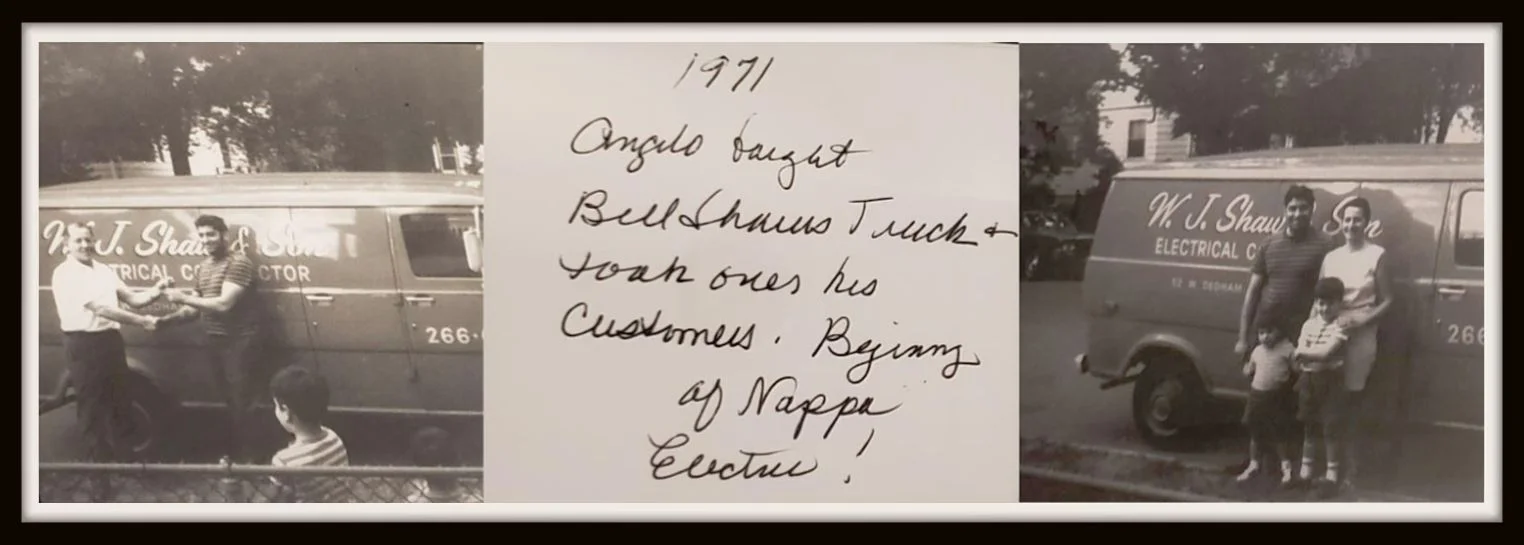 W. J. Shaw & Son
TRICAL CO CTOR
266-
1971
Angelo bought
Bill Shaws Truck &
took over his
Customers. Begining
of Nappa
Electric!
W. J. Shaw Son
ELECTRICAL C
52 W. DEDHAM
266